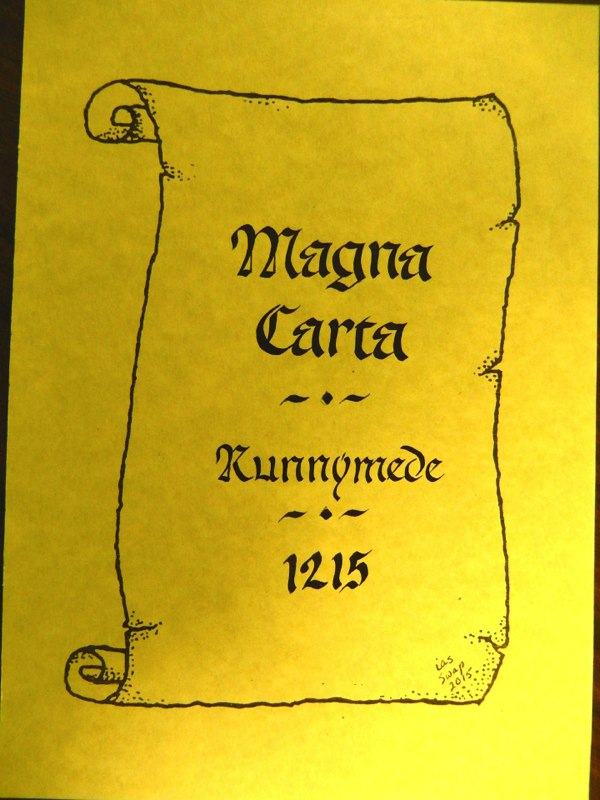 Magna
Carta
~ · ~
Runnymede
~ · ~
1215
ias
Swap
2015